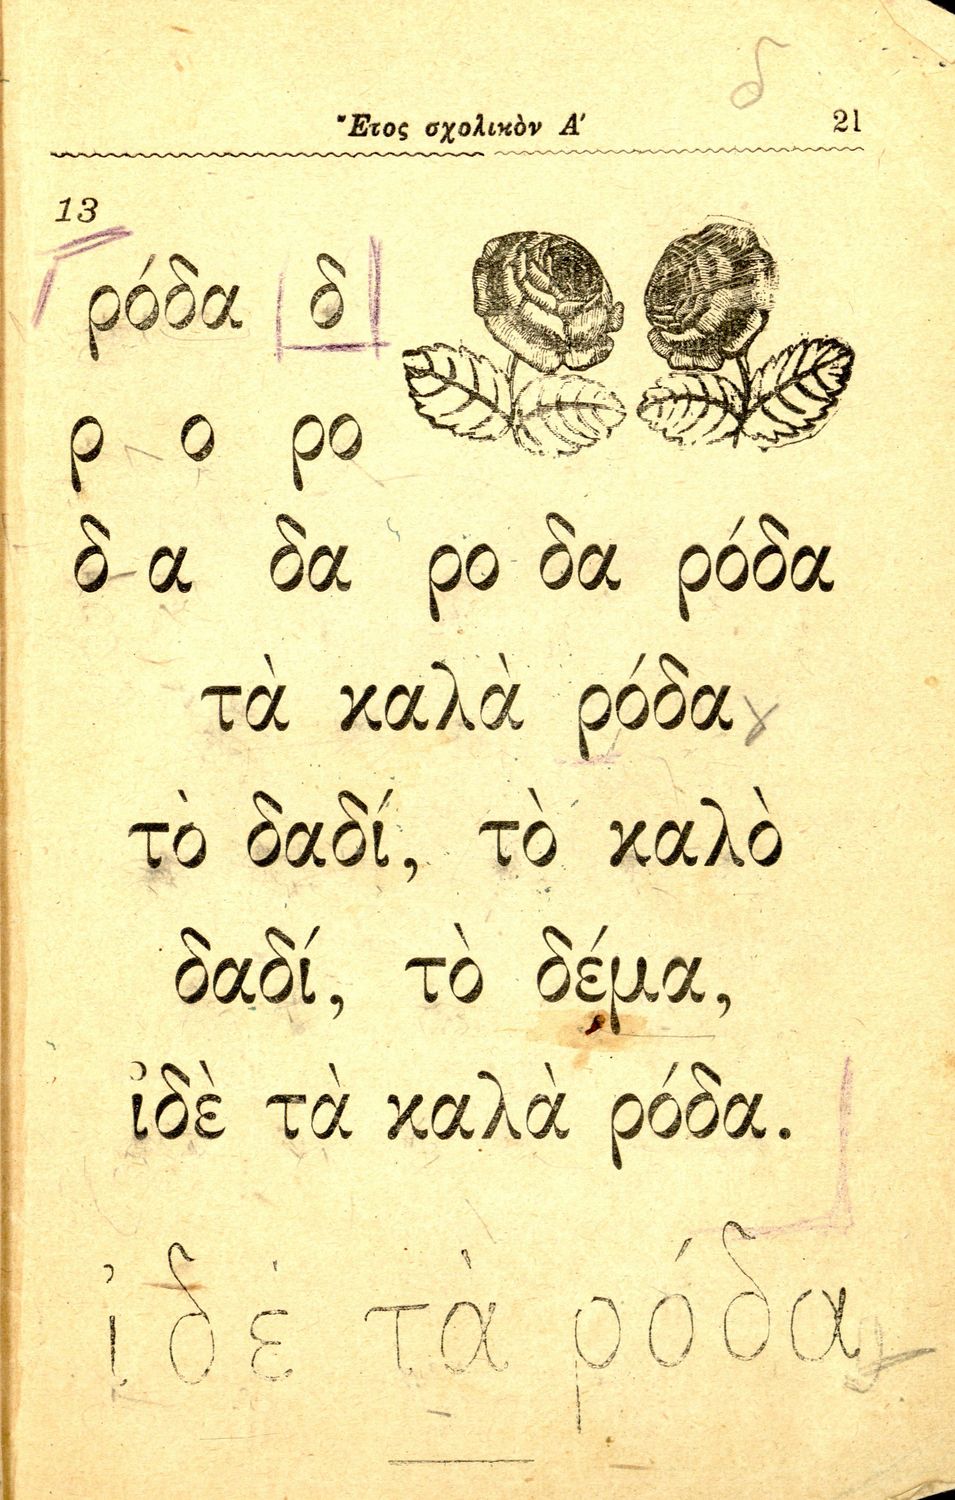 δ
Ἔτος σχολικὸν Α΄ 21
13
ρόδα δ
ρ ο ρο
δ α δα ρο δα ρόδα
τὰ καλὰ ρόδα
τὸ δαδί, τὸ καλὸ
δαδί, τὸ δέμα,
ἰδὲ τὰ καλὰ ρόδα.
ἰδὲ τὰ ρόδα